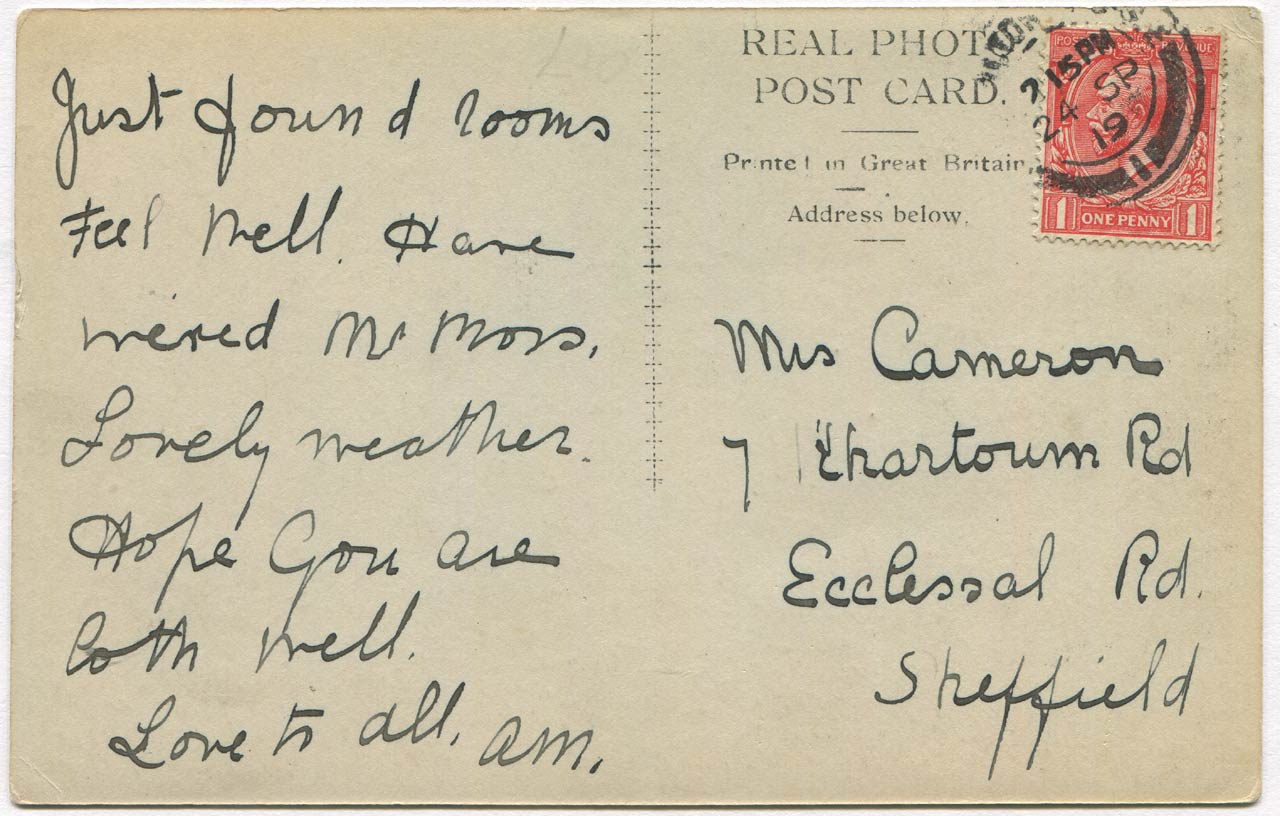 Just found rooms
Feel Well. Have
wired Mr Moss,
Lovely weather.
Hope you are
both well.
Love to all. am.
REAL PHOTO
POST CARD.
Printed in Great Britain
Address below.
7 15 PM
24 SP
19
POSTAGE REVENUE
1 ONE PENNY 1
Mrs Cameron
7 Khartoum Rd
Ecclessal Rd.
Sheffield